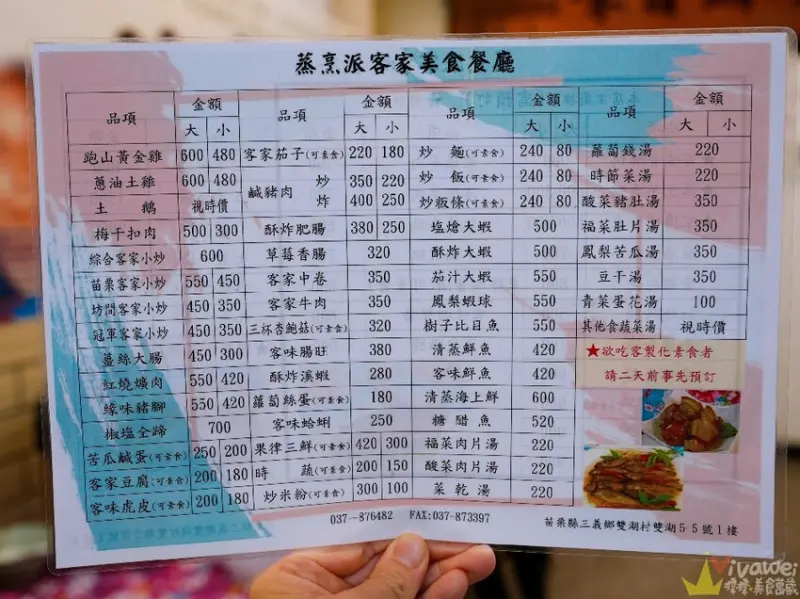 蒸烹派客家美食餐廳
品項 金額 大 小
跑山黃金雞 600 480
蔥油土雞 600 480
土 鵝 視時價
梅干扣肉 500 300
綜合客家小炒 600
苗栗客家小炒 550 450
坊間客家小炒 450 350
冠軍客家小炒 450 350
薑絲大腸 450 300
紅燒爌肉 550 420
緣味豬腳 550 420
椒塩全蹄 700
苦瓜鹹蛋(可素食) 250 200
客家豆腐(可素食) 200 180
客味虎皮(可素食) 200 180
品項 金額 大 小
客家茄子(可素食) 220 180
鹹豬肉 炒 350 220
炸 400 250
酥炸肥腸 380 250
草莓香腸 320
客家中卷 350
客家牛肉 350
三杯杏鮑菇(可素食) 320
客味腸旺 380
酥炸溪蝦 280
蘿蔔絲蛋(可素食) 180
客味蛤蜊 250
果律三鮮(可素食) 420 300
時 蔬(可素食) 200 150
炒米粉(可素食) 300 100
品項 金額 大 小
炒 麵(可素食) 240 80
炒 飯(可素食) 240 80
炒粄條(可素食) 240 80
塩熗大蝦 500
酥炸大蝦 500
茄汁大蝦 550
鳳梨蝦球 550
樹子比目魚 550
清蒸鮮魚 420
客味鮮魚 420
清蒸海上鮮 600
糖醋魚 520
福菜肉片湯 220
酸菜肉片湯 220
菜乾湯 220
品項 金額 大 小
蘿蔔錢湯 220
時節菜湯 220
酸菜豬肚湯 350
福菜肚片湯 350
鳳梨苦瓜湯 350
豆干湯 350
青菜蛋花湯 100
其他食蔬菜湯 視時價
★欲吃客製化素食者
請二天前事先預訂
037-876482 FAX:037-873397
苗栗縣三義鄉雙湖村雙湖55號1樓
Vivawei